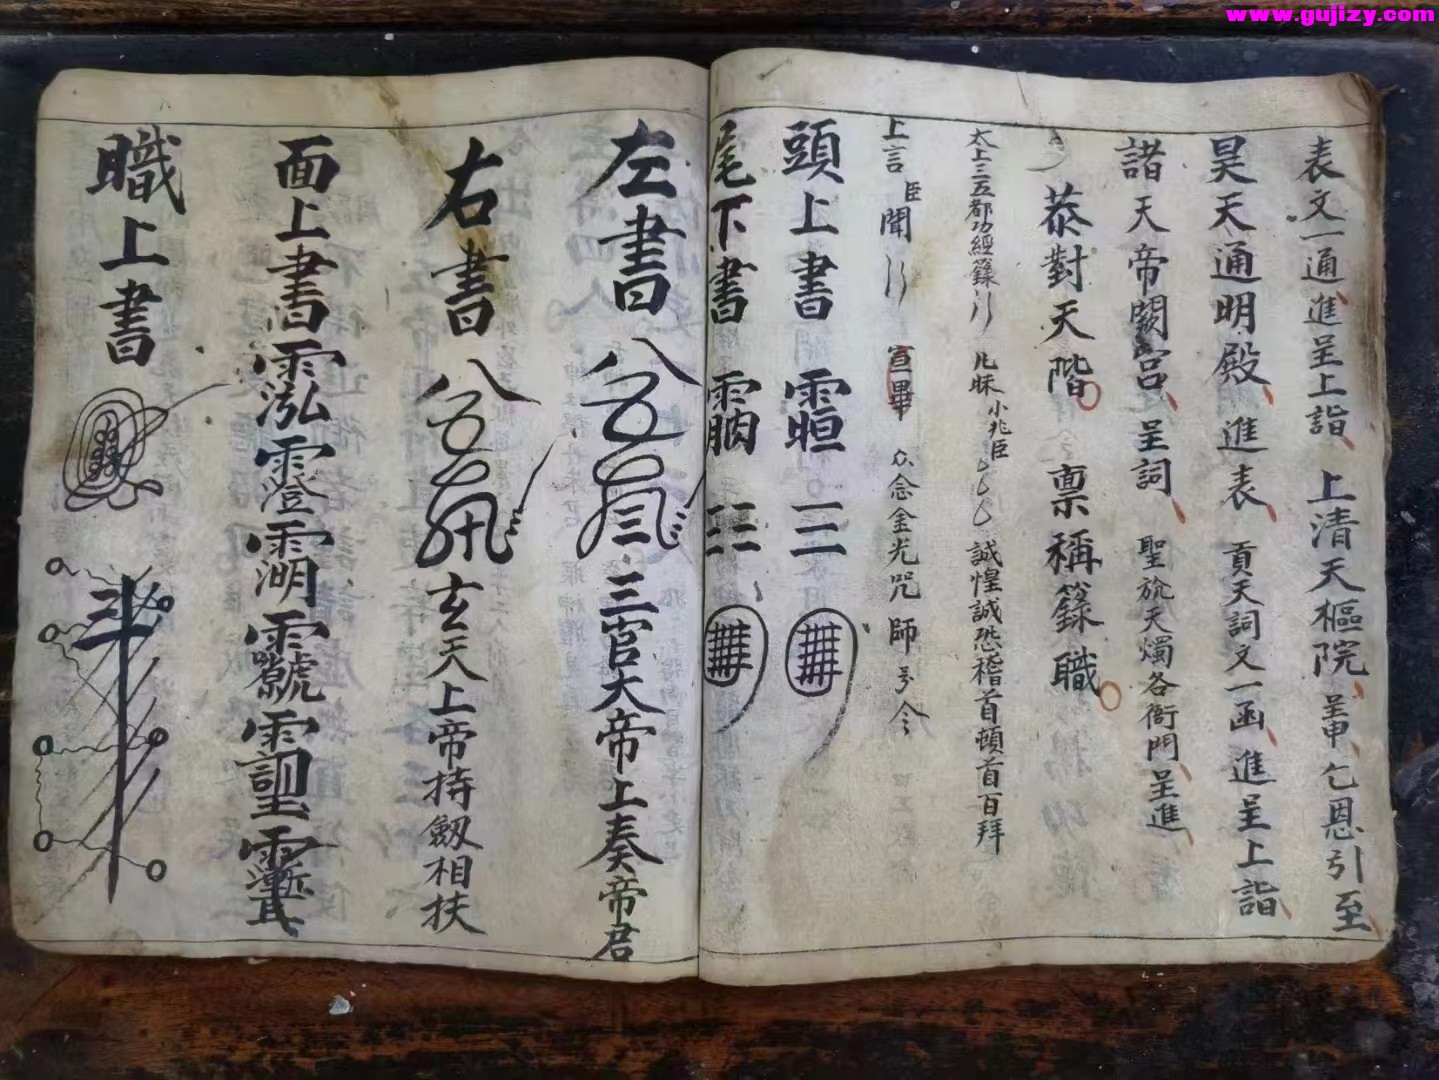 www.gujizy.com
表文一通進呈上詣上清天樞院呈申乞恩引至
昊天通明殿進表貢天詞文一函進呈上詣
諸天帝闕宮呈詞聖旒天燭各衙門呈進
恭對天階稟稱籙職
太上三五都功經籙凡昧小兆臣誠惶誠恐稽首頓首百拜
上言臣聞宣畢众念金光咒師号令
頭上書
尾下書
左書三官大帝上奏帝君
右書玄天上帝持劔相扶
面上書
職上書